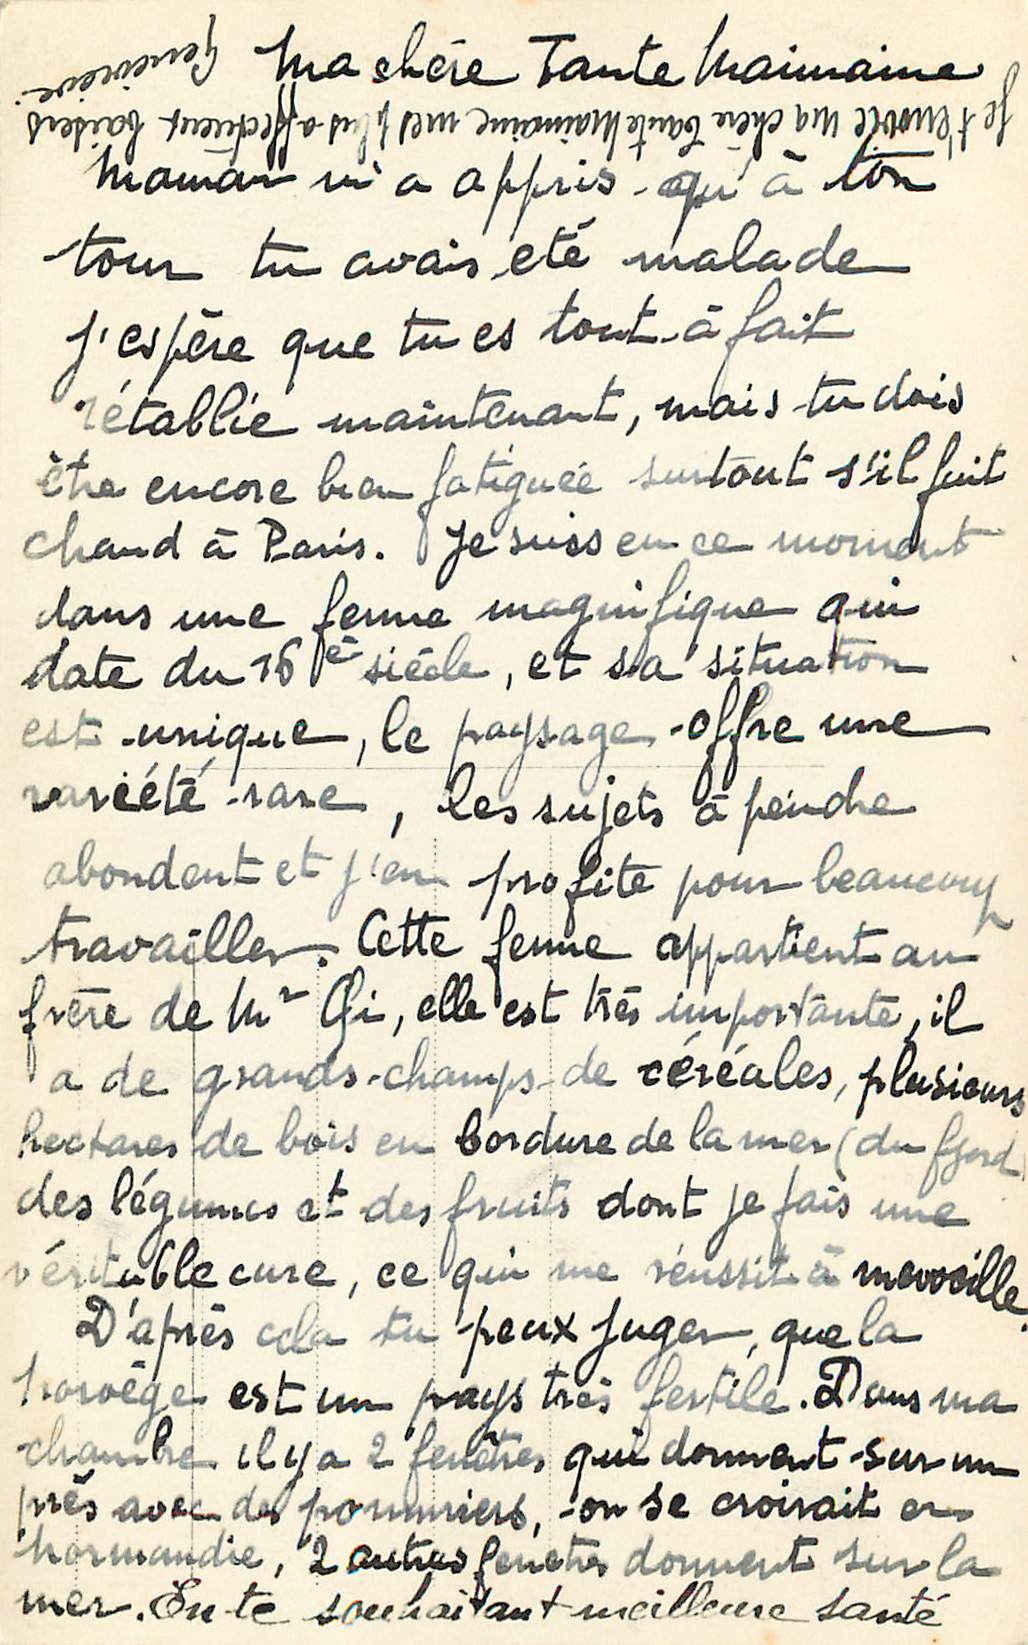 Ma chère Tante Maimaine
Maman m'a appris qu'à ton
tour tu avais été malade
j'espère que tu es tout à fait
rétablie maintenant, mais tu dois
être encore bien fatiguée surtout s'il fait
chaud à Paris. Je suis en ce moment
dans une ferme magnifique qui
date du 16è siècle, et sa situation
est unique, le paysage offre une
variété rare, les sujets à peindre
abondent et j'en profite pour beaucoup
travailler. Cette ferme appartient au
frère de Mr Gi, elle est très importante, il
a de grands champs de céréales, plusieurs
hectares de bois en bordure de la mer (du fjord)
des légumes et des fruits dont je fais une
véritable cure, ce qui me réussit à merveille.
D'après cela tu peux juger, que la
Norvège est un pays très fertile. Dans ma
chambre il y a 2 fenêtres qui donnent sur un
près avec des pommiers, on se croirait en
Normandie, 2 autres fenetres donnent sur la
mer. En te souhaitant meilleure santé
je t'envoie ma chère Tante Maimaine mes plus affectueux baisers
Geneviève.